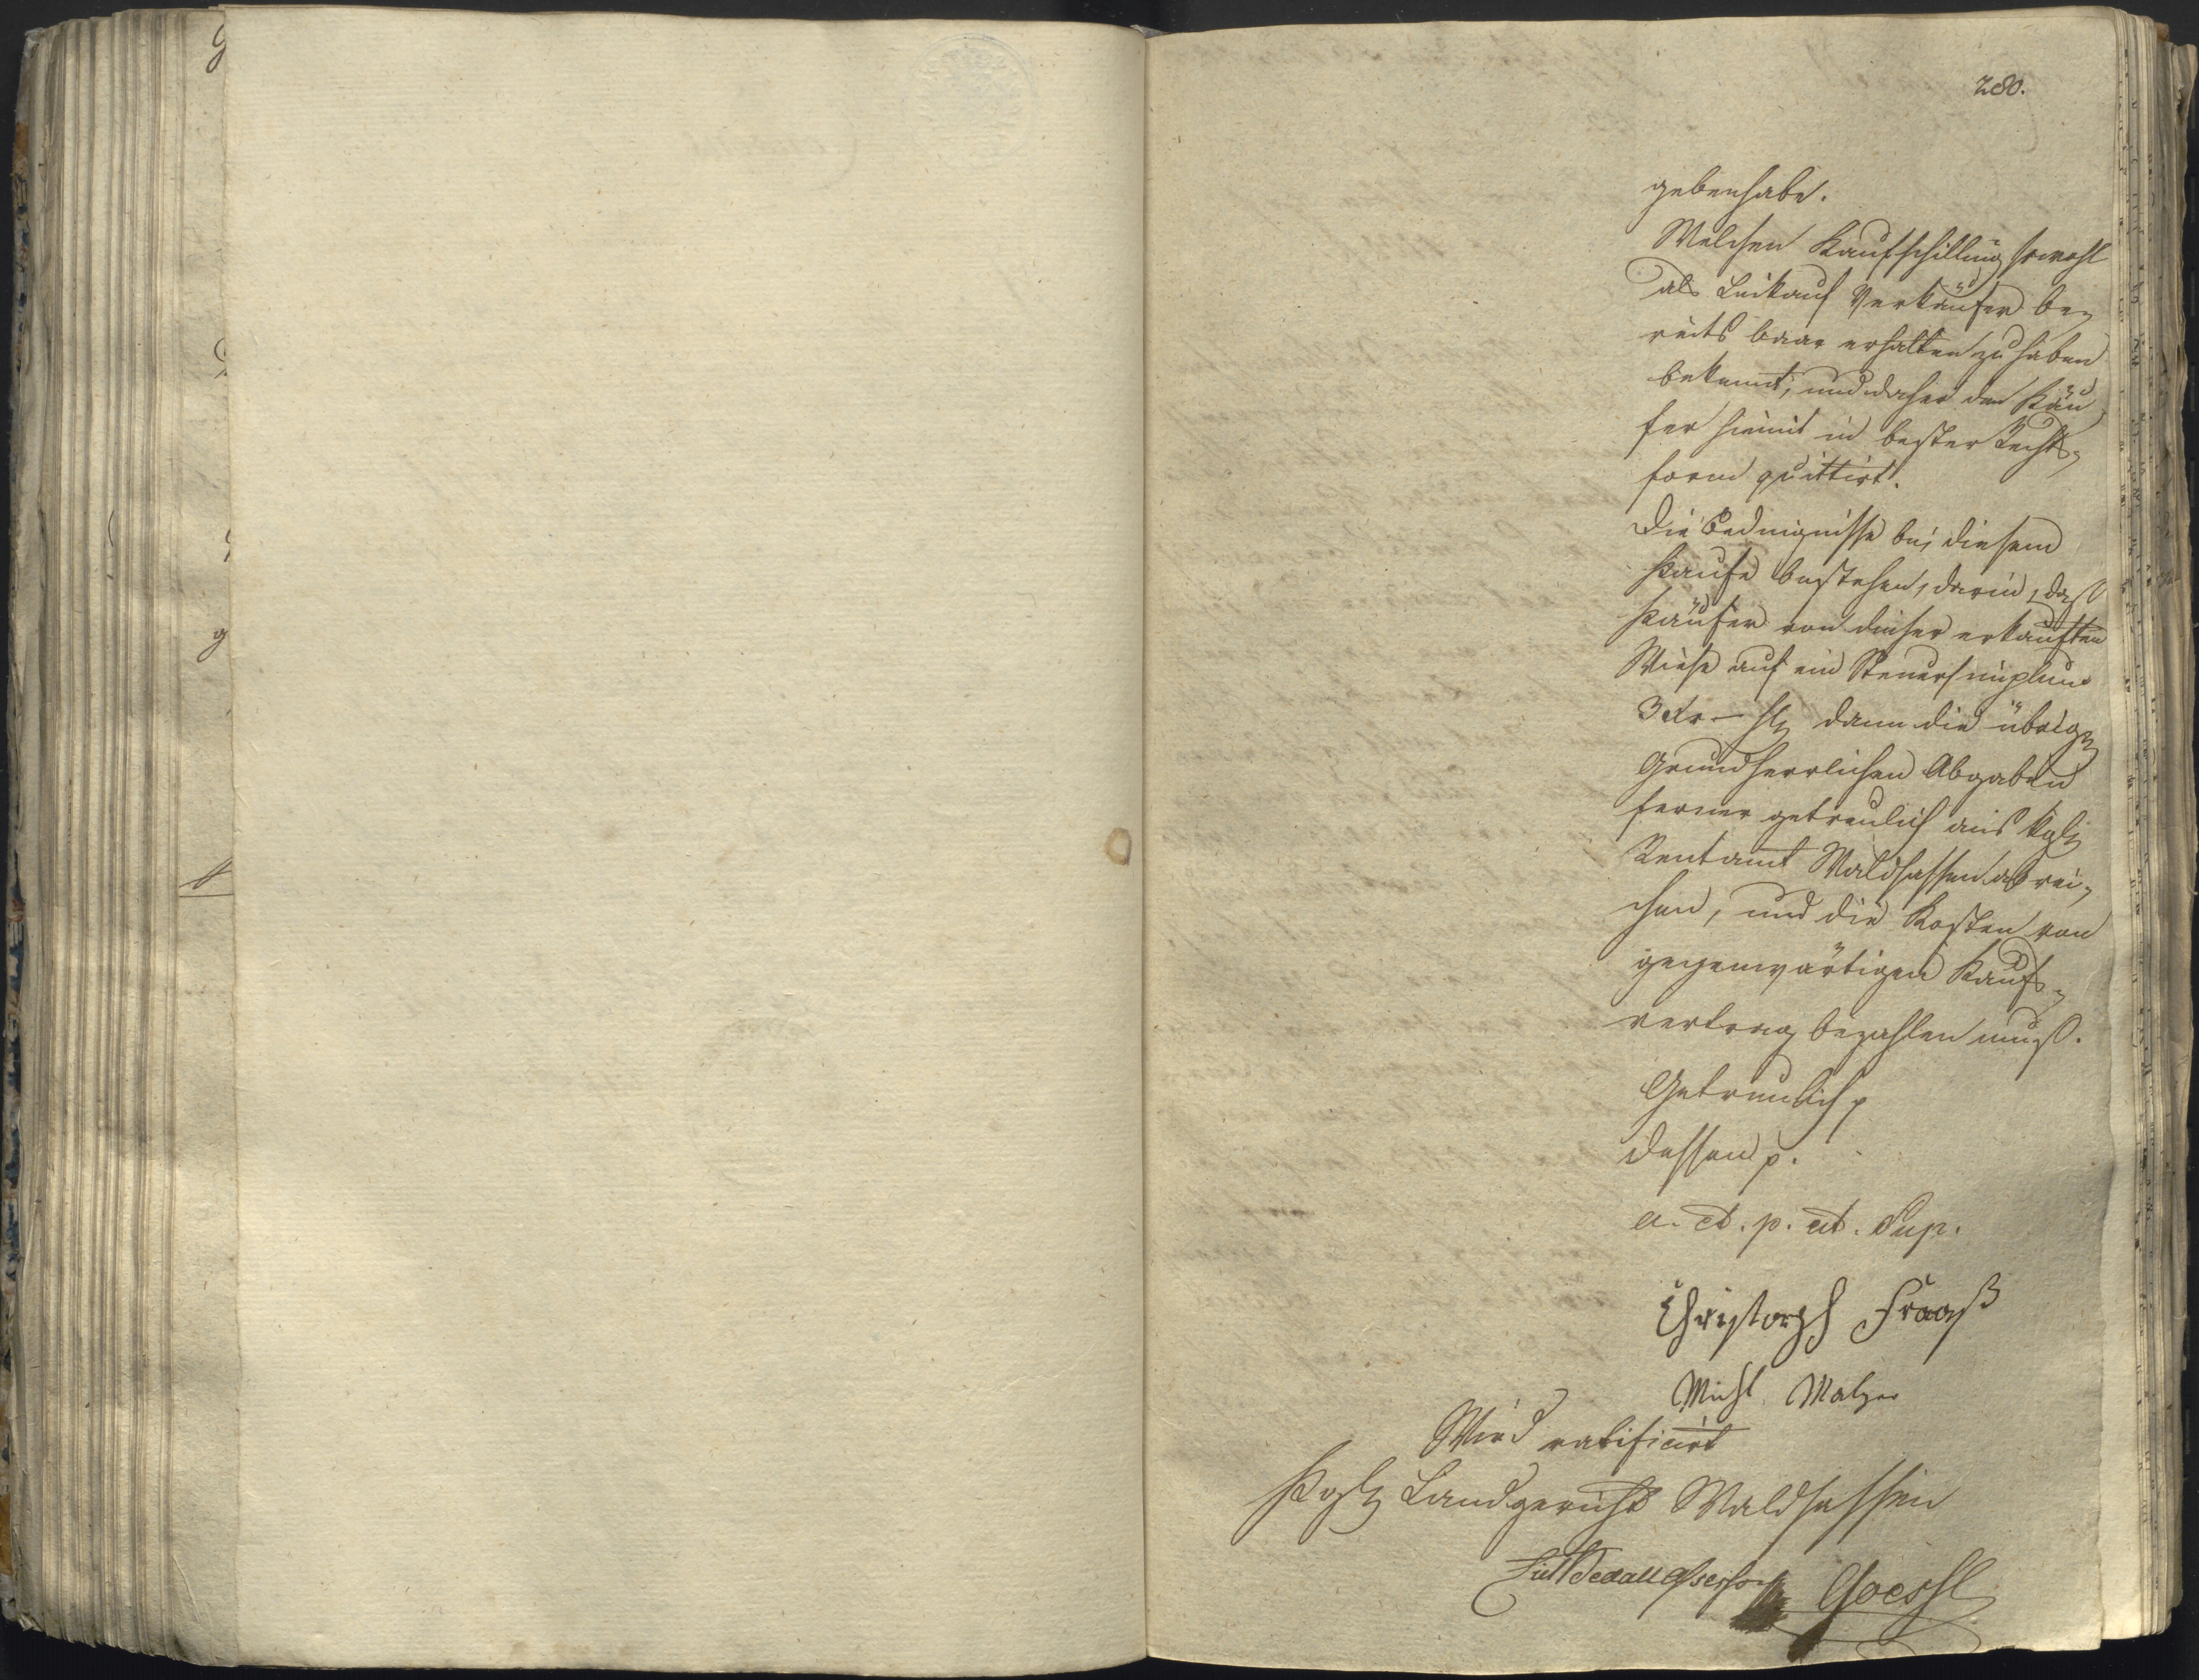 280.
gebenhabe.
Welchen Kaufschilling sowohl
als Leikauf Verkäufer be-
reits baar erhalten zu haben
bekennt, und daher den Käu
fer hiemit in bester Rechts-
form quittirt.
Die Bedingnisse bei diesem
Kaufe bestehen, darin, daß
Käufer von dieser erkauften
Wiese auf ein Steuersimplum
3 Xr — hl dann die übrigen
Grundherrlichen Abgaben
ferner getreulich ans kgl
Rentamt Waldsassen abrei-
chen, und die Kosten von
gegenwärtigen Kaufs-
vertrag bezahlen muß.
Getreulich p
dessen p.
a. et. p. ut. Sup.
Christoph Fraaß
Michl Malzer
Wird ratificirt
Kgl Landgericht Waldsassen
Assessor Goessl